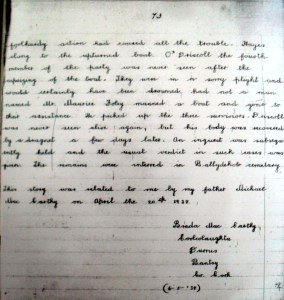 73
foolhardy action had caused all the trouble. Hayes
clung to the upturned boat O'Driscoll the fourth
member of the party was never seen after the
capsizing of the boat. They were in a sorry plight and
would certainly have been drowned had not a man
named Mr. Maurice Foley manned a boat and gone to
their assistance. He picked up the three survivors. O'Driscoll
was never seen alive again, but his body was recovered
by a dragnet a few days later. An inquest was subseq-
uently held and the usual verdict in such cases was
given. The remains were interred in Ballydehob cemetery.
This story was related to me by my father Michael
Mac Carthy on April the 20th 1938.
Brian Mac Carthy,
Durrus
Bantry
Co. Cork